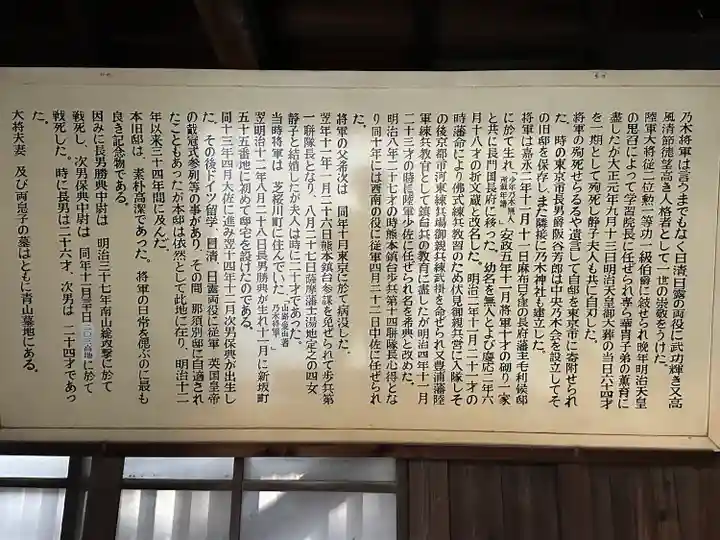 乃木将軍は言うまでもなく日清日露の両役に武功輝き又高
風清節徳望高き人格者として一世の崇敬をうけた
陸軍大将従二位勲一等功一級伯爵に叙せられ晩年明治天皇
の思召によって学習院長に任ぜられ専ら華冑子弟の薫育に
盡したが大正元年九月十三日明治天皇御大葬の当日六十四才
を一期として殉死し静子夫人も共に自刃した。
将軍の殉死せらるるや遺言して自邸を東京市に寄附せられ
た。時の東京市長男爵阪谷芳郎は中央乃木会を設立してそ
の旧邸を保存しまた隣接に乃木神社も建立した。
将軍は嘉永二年十一月十一日麻布日ヶ窪の長府藩主毛利候邸
に於て生れ(少年乃木無人所蔵年譜)安政五年十一月将軍十才の砌り一家
と共に長門国長府に移った。幼名を無人とよび慶応二年六
月十八才の折文蔵と改名した。明治二年十一月二十一才の
時藩命により佛式練兵教習のため伏見御親兵営に入隊しそ
の後京都市河東練兵場御親兵練武掛を命せられ又豊浦藩陸
軍練兵教官として鎮台兵の教育に盡したが明治四年十一月
二十三才の時に陸軍少佐に任ぜられ名を希典と改めた。
明治八年二十七才の時熊本鎮台歩兵第十四聯隊長心得とな
り同十年には西南の役に従軍四月二十二日中佐に任ぜられ
た。
将軍の父希次は 同年十月東京に於て病没した。
翌年十一年一月二十六日熊本鎮台参謀を免ぜられて歩兵第
一聯隊長となり、八月二十七日薩摩藩士湯地定之の四女
静子と結婚したが夫人は時に二十才であった。
当時将軍は 芝桜川町に住んでいた。「山路愛山著 乃木将軍」
翌明治十二年八月二十八日長男勝典が生れ十一月に新坂町
五十五番地に初めて邸宅を設けたのである。
同十三年四月大佐に進み翌十四年十二月次男保典が出生し
た。その後ドイツ留学 日清 日露両役に従軍 英国皇帝
の戴冠式参列等の事があり、その間 那須別邸に自適され
たこともあったが本邸は依然として此地に在り、明治十二
年以来三十四年間に及んだ
本旧邸は、素朴高潔であった。将軍の日常を偲ぶのに最も
良き記念物である。
因みに長男勝典中尉は 明治三十七年南山総攻撃に於て
戦死し、次男保典中尉は 同年十一月三十日二〇三高地に於て
戦死した。時に長男は二十六才、次男は二十四才であっ
た。
大将夫妻 及び両息子の墓はともに青山墓地にある。